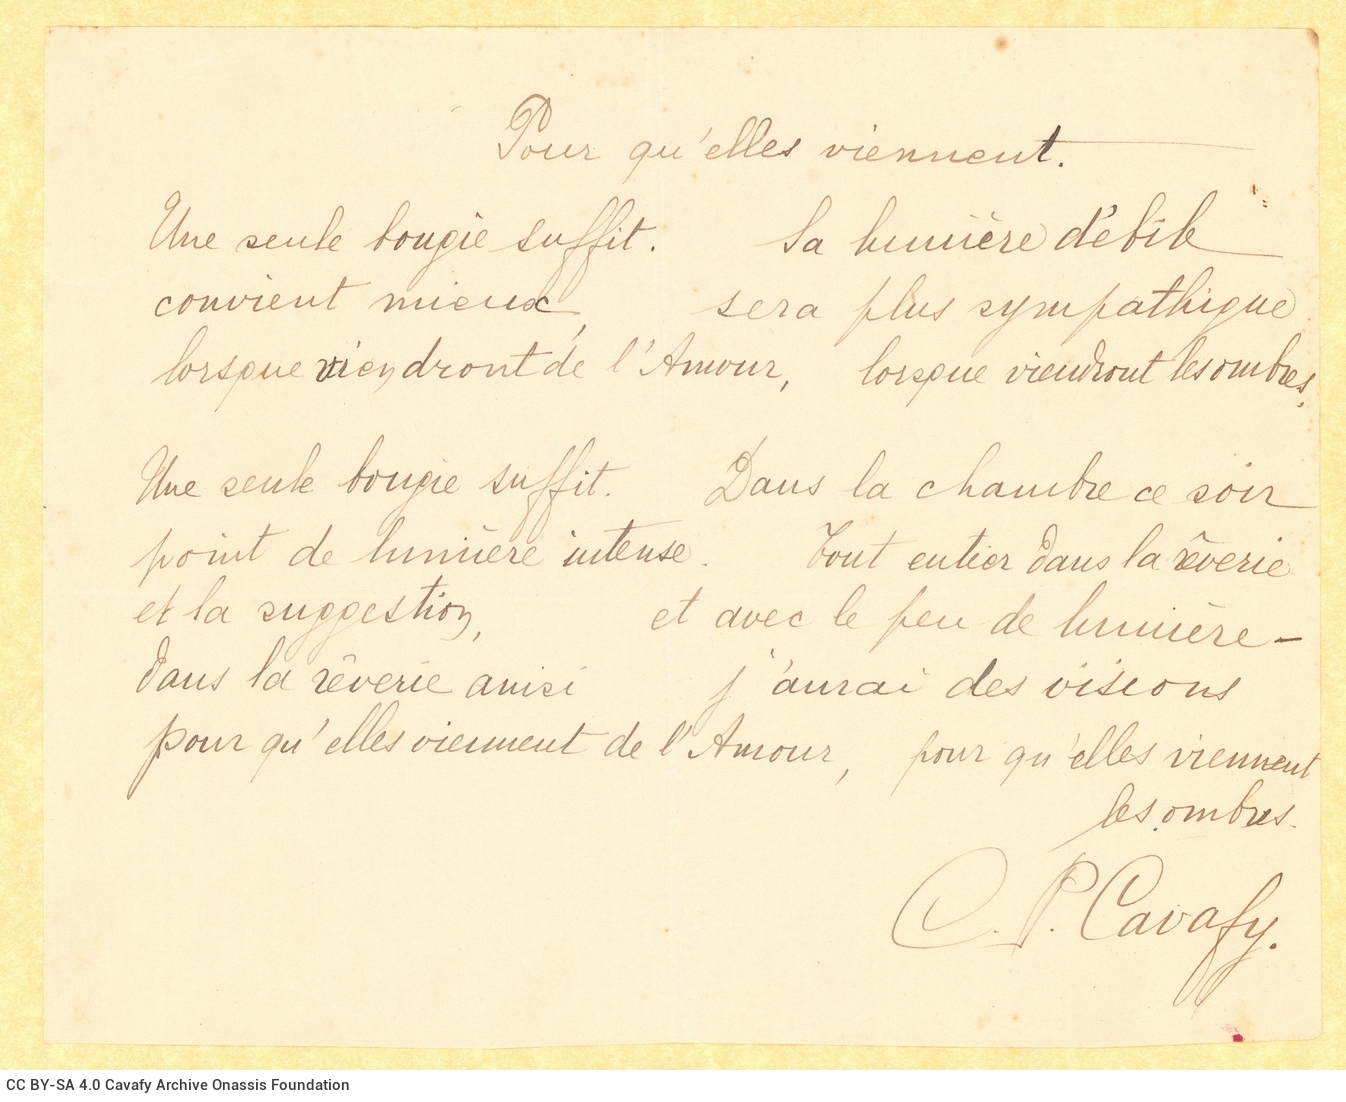 Pour qu'elles viennent.
Une seule bougie suffit. Sa lumière débile
convient mieux, sera plus sympathique
lorsque viendront de l'Amour, lorsque viendront les ombres.
Une seule bougie suffit. Dans la chambre ce soir
point de lumière intense. Tout entier dans la rêverie
et la suggestion, et avec le peu de lumière —
dans la rêverie ainsi j'aurai des visions
pour qu'elles viennent de l'Amour, pour qu'elles viennent
les ombres.
C. P. Cavafy.
CC BY-SA 4.0 Cavafy Archive Onassis Foundation